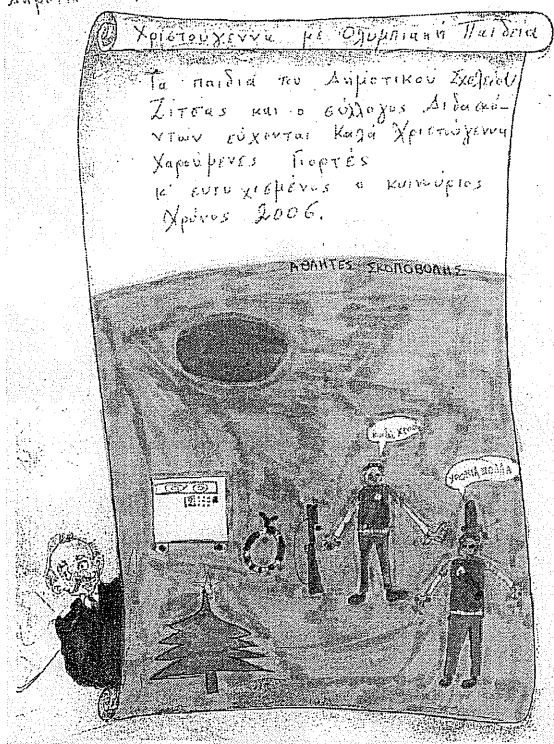 Χριστούγεννα με Ολυμπιακή Παιδεία
Τα παιδιά του Δημοτικού Σχολείου
Ζίτσας και ο σύλλογος Διδασκό-
ντων εύχονται Καλά Χριστούγεννα
Χαρούμενες Γιορτές
κ' ευτυχισμένος ο καινούριος
Χρόνος 2006.
ΑΘΛΗΤΕΣ ΣΚΟΠΟΒΟΛΗΣ
ΧΡΟΝΙΑ ΠΟΛΛΑ